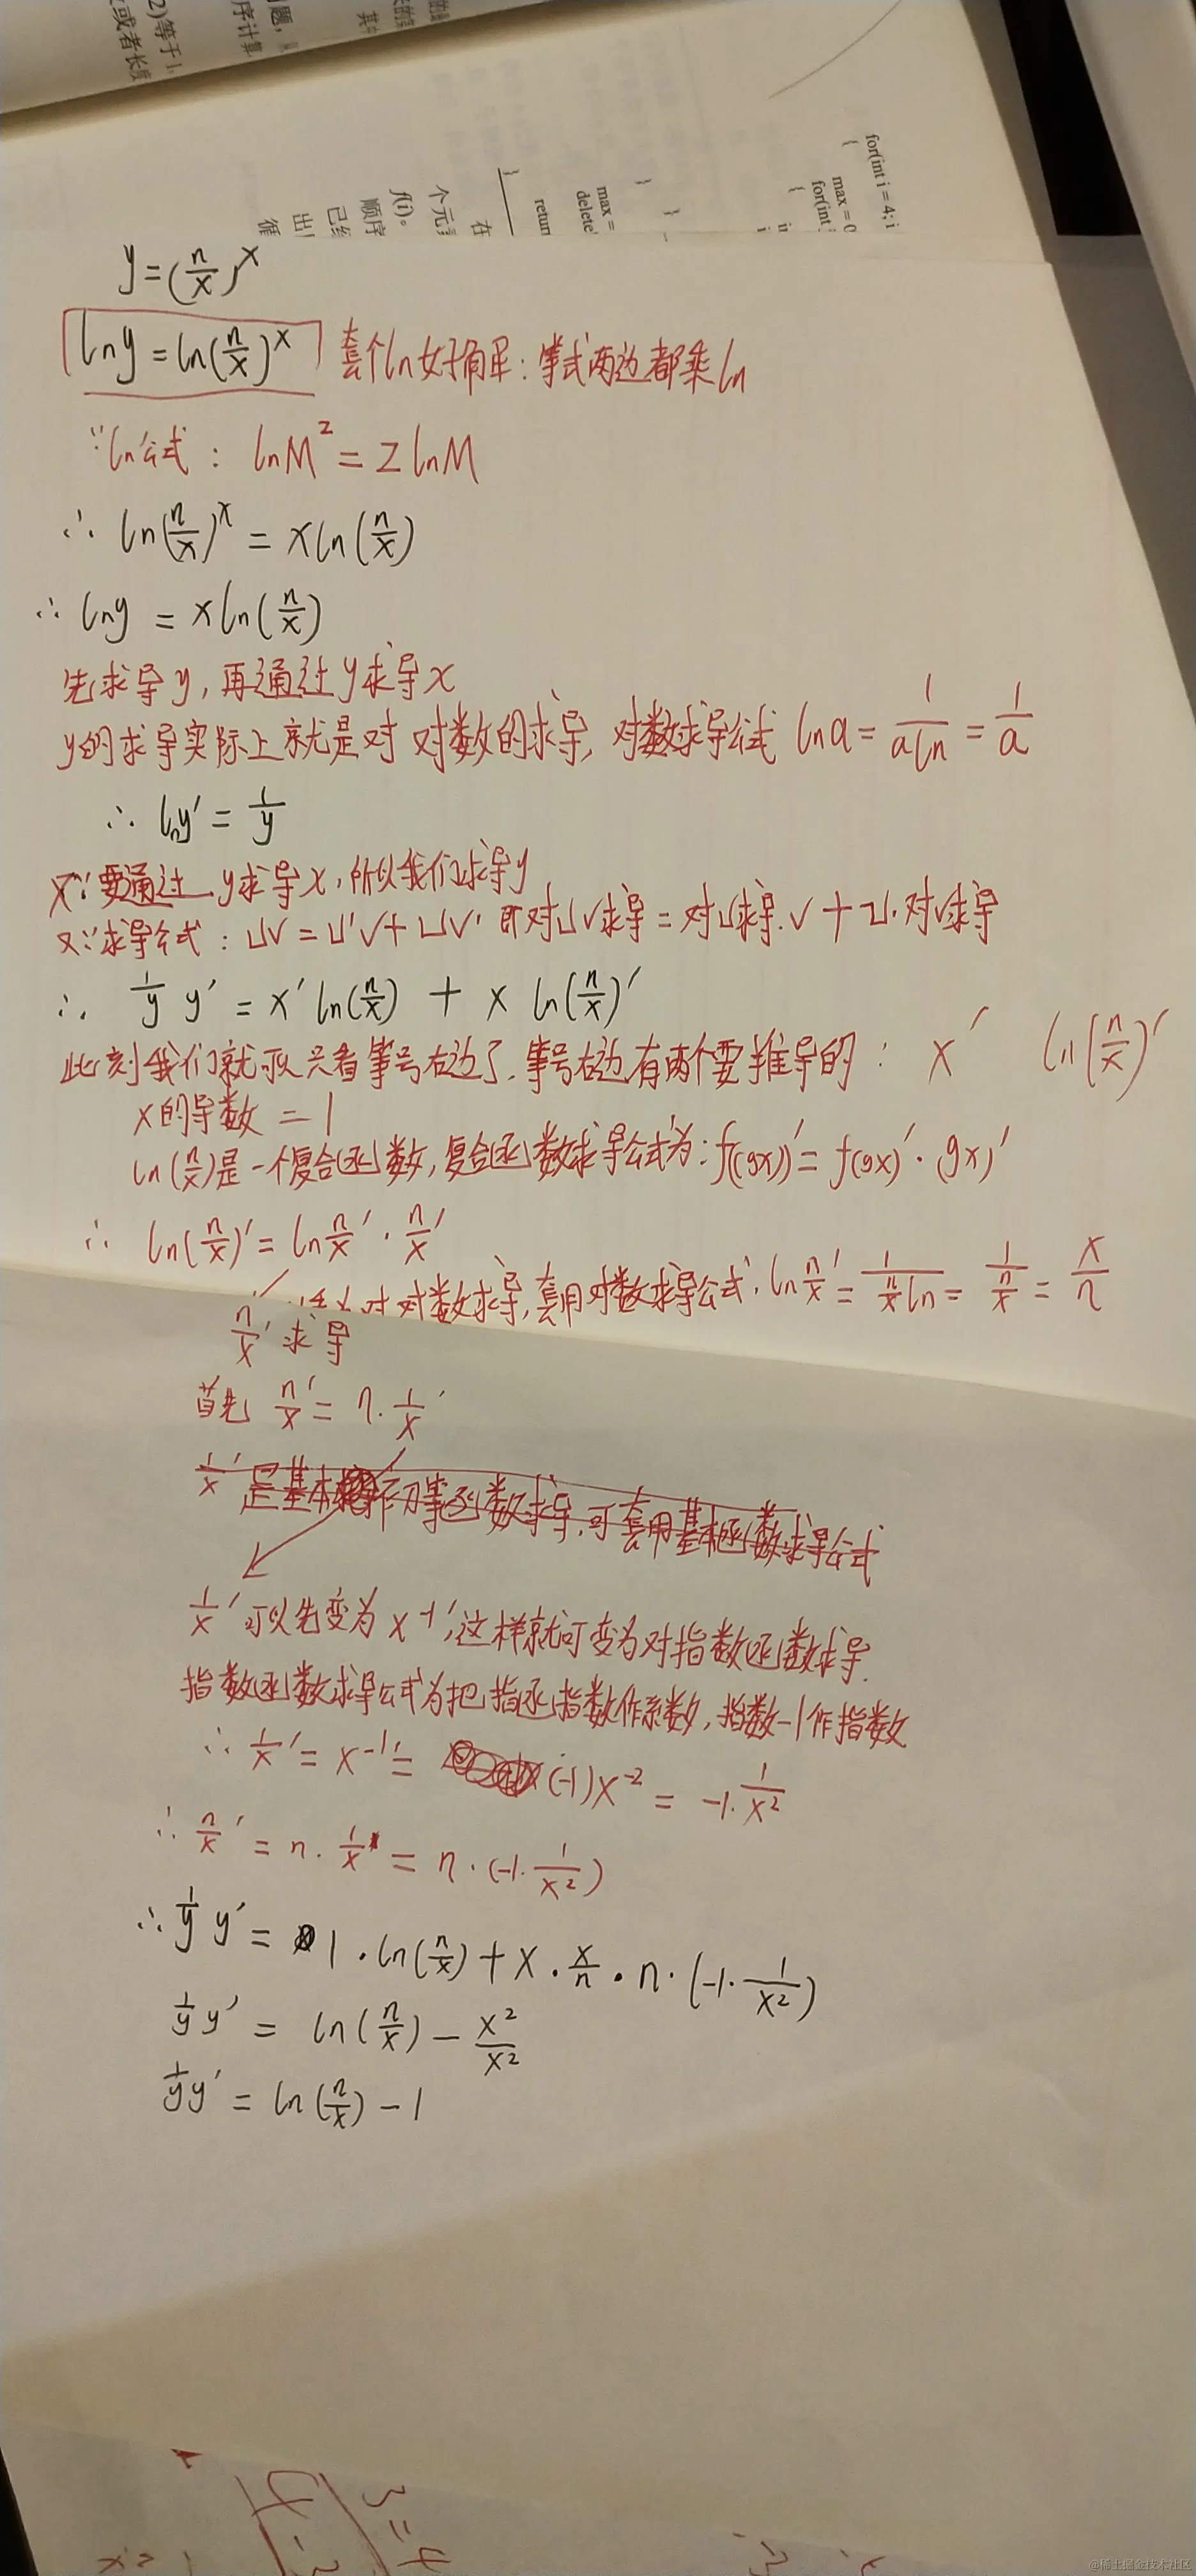 2)等于1,
或者长度
题,
序计算
其中
for(int i = 4; i
{
max = 0
for(int
{
i
}
}
max =
delete
retur
}
在
个元
f(i)。
顺序
已
出
y=(n/x)^x
lny=ln(n/x)^x 套个ln好角军:等式两边都乘ln
∵ln公式: lnM^2=2lnM
∴ ln(n/x)^x = xln(n/x)
∴ lny = xln(n/x)
先求导y,再通过y求导x
y的求导实际上就是对对数的求导,对数求导公式 lna=1/(aln)=1/a
∴ lny′=1/y
又∵要通过y求导x,所以我们求导y
又∵求导公式: uv=u′v+uv′ 即对uv求导=对u求导·v+u·对v求导
∴ 1/y y′=x′ln(n/x) + x ln(n/x)′
此刻我们就可以只看等号右边了.等号右边有两个要推导的: x′ ln(n/x)′
x的导数=1
ln(n/x)是一个复合函数,复合函数求导公式为:f(gx))′=f(gx)′·(gx)′
∴ ln(n/x)′=ln n/x′·n/x′
对对数求导,套用对数求导公式. ln n/x′=1/(n/x ln)=1/(n/x)=x/n
n/x′求导
首先 n/x′=n·1/x′
1/x′是基本初等函数求导,可套用基本函数求导公式
1/x′可以先变为x^-1′,这样就可变为对指数函数求导.
指数函数求导公式为把指函指数作系数,指数-1作指数
∴ 1/x′=x^-1′=(-1)x^-2=-1·1/x^2
∴ n/x′=n·1/x′=n·(-1·1/x^2)
∴ 1/y y′=1·ln(n/x)+x·x/n·n·(-1·1/x^2)
1/y y′=ln(n/x)-x^2/x^2
1/y y′=ln(n/x)-1
@稀土掘金技术社区